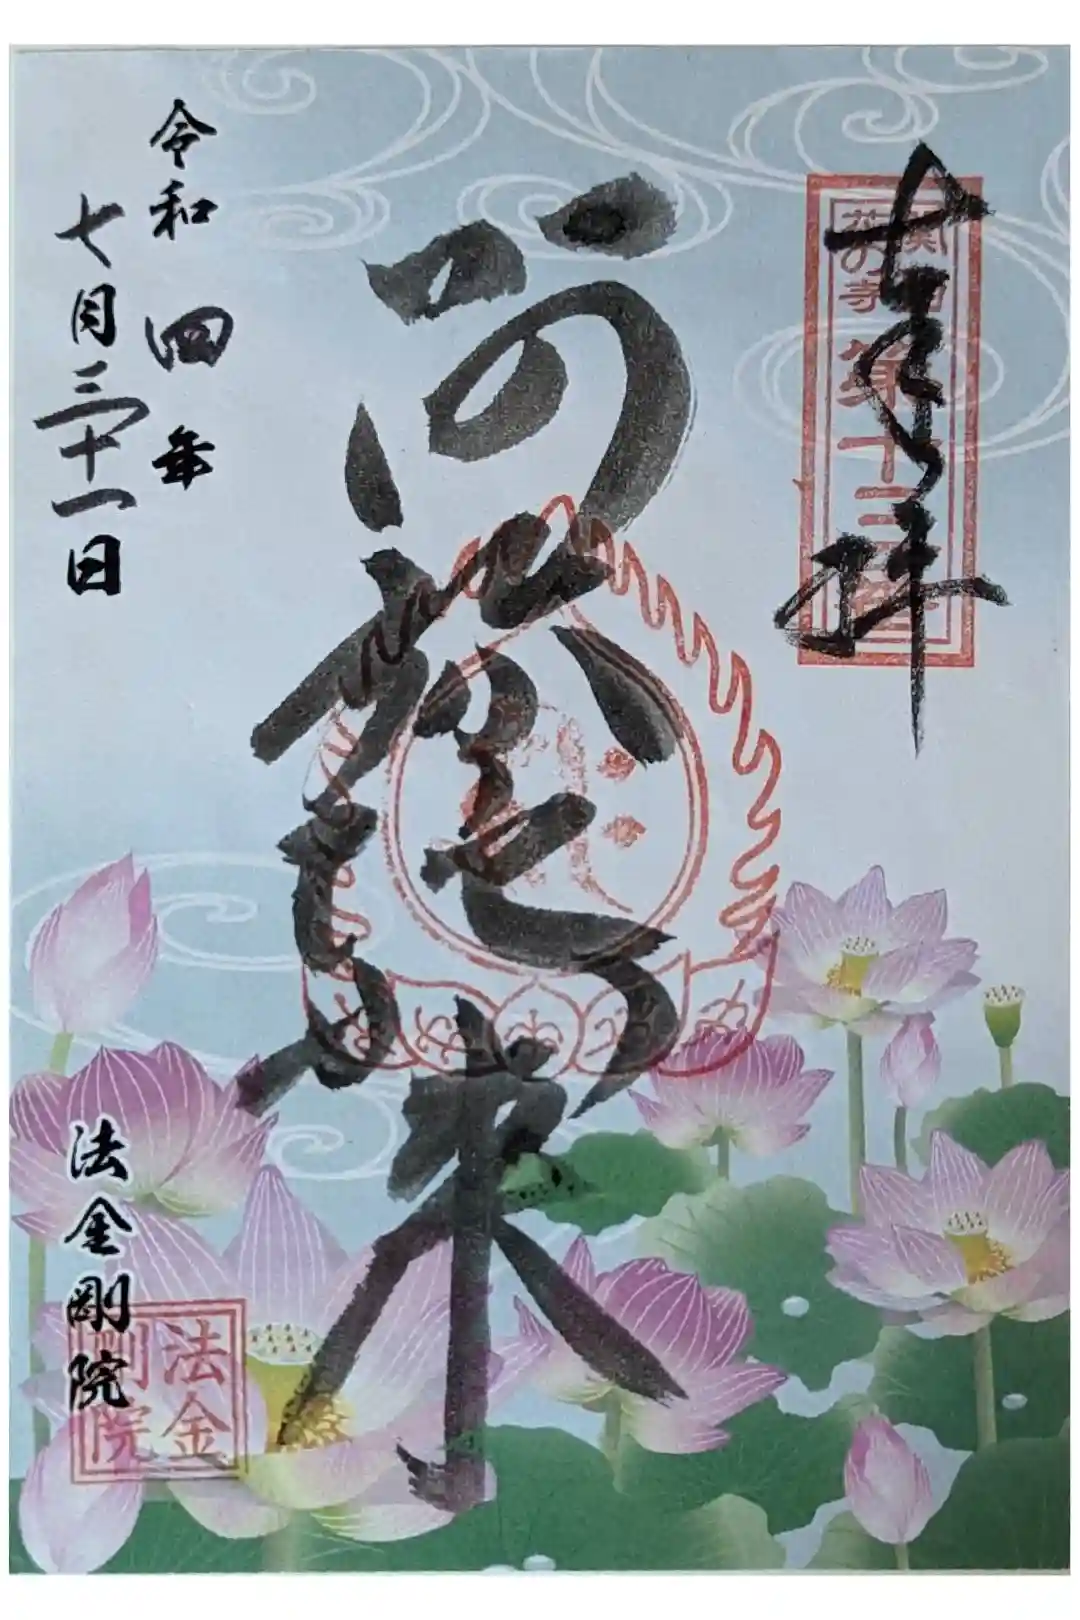 奉拝
関西花の寺第十三番
阿弥陀如来
令和四年
七月三十一日
法金剛院
法金剛院